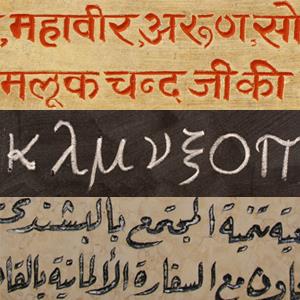 , महावीर, अरूण, सो
मलूक चन्द जी की
κ λ μ ν ξ ο π
ية تنمية المجتمع بالبشندى
اون مع السفارة الألمانية بالقا